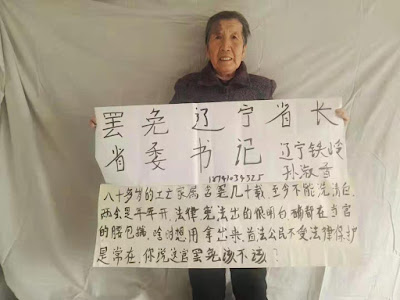 罢免辽宁省长
省委书记 辽宁铁岭
18741034325 孙淑
八十多岁的工亡家属含冤几十载,至今不能洗清白,
两会是年年开、法律宪法出的很明白 在当官
的腰包揣,啥时想用拿出来,法公民不受法律保护
是常在,你说这官罢免该不该?